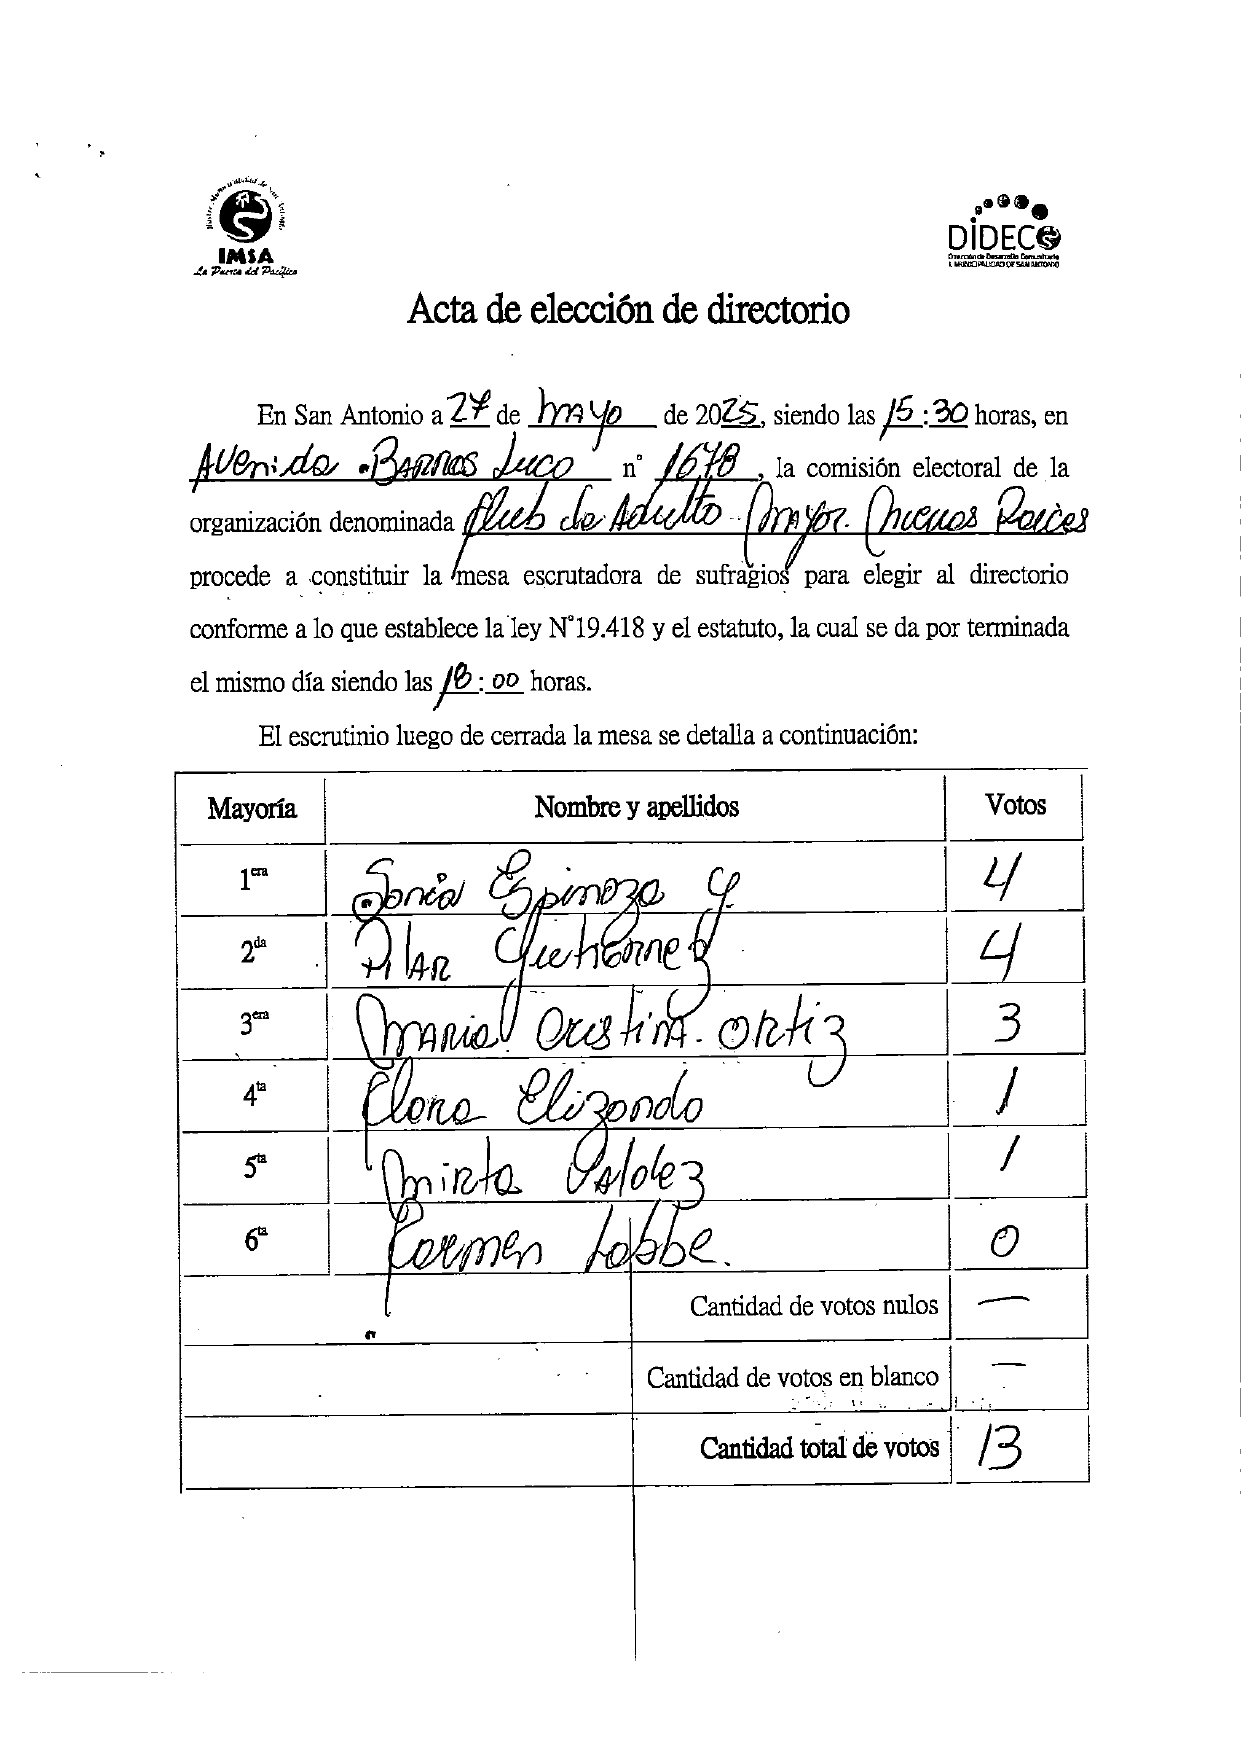 Ilustre Municipalidad de San Antonio
IMSA
La Puerta del Pacífico
DIDECO
Dirección de Desarrollo Comunitario
I. MUNICIPALIDAD DE SAN ANTONIO
Acta de elección de directorio
En San Antonio a 27 de mayo de 2025, siendo las 15:30 horas, en
Avenida Barros Luco n° 1678, la comisión electoral de la
organización denominada Club de Adulto Mayor Nuevas Raices
procede a constituir la mesa escrutadora de sufragios para elegir al directorio
conforme a lo que establece la ley N°19.418 y el estatuto, la cual se da por terminada
el mismo día siendo las 18:00 horas.
El escrutinio luego de cerrada la mesa se detalla a continuación:
Mayoría Nombre y apellidos Votos
1era Sonia Espinoza y 4
2da Pilar Gutierrez 4
3era Maria Cristina Ortiz 3
4ta Elona Elizondo 1
5ta Mirta Valdez 1
6ta Carmen Lobbe. 0
Cantidad de votos nulos —
Cantidad de votos en blanco —
Cantidad total de votos 13